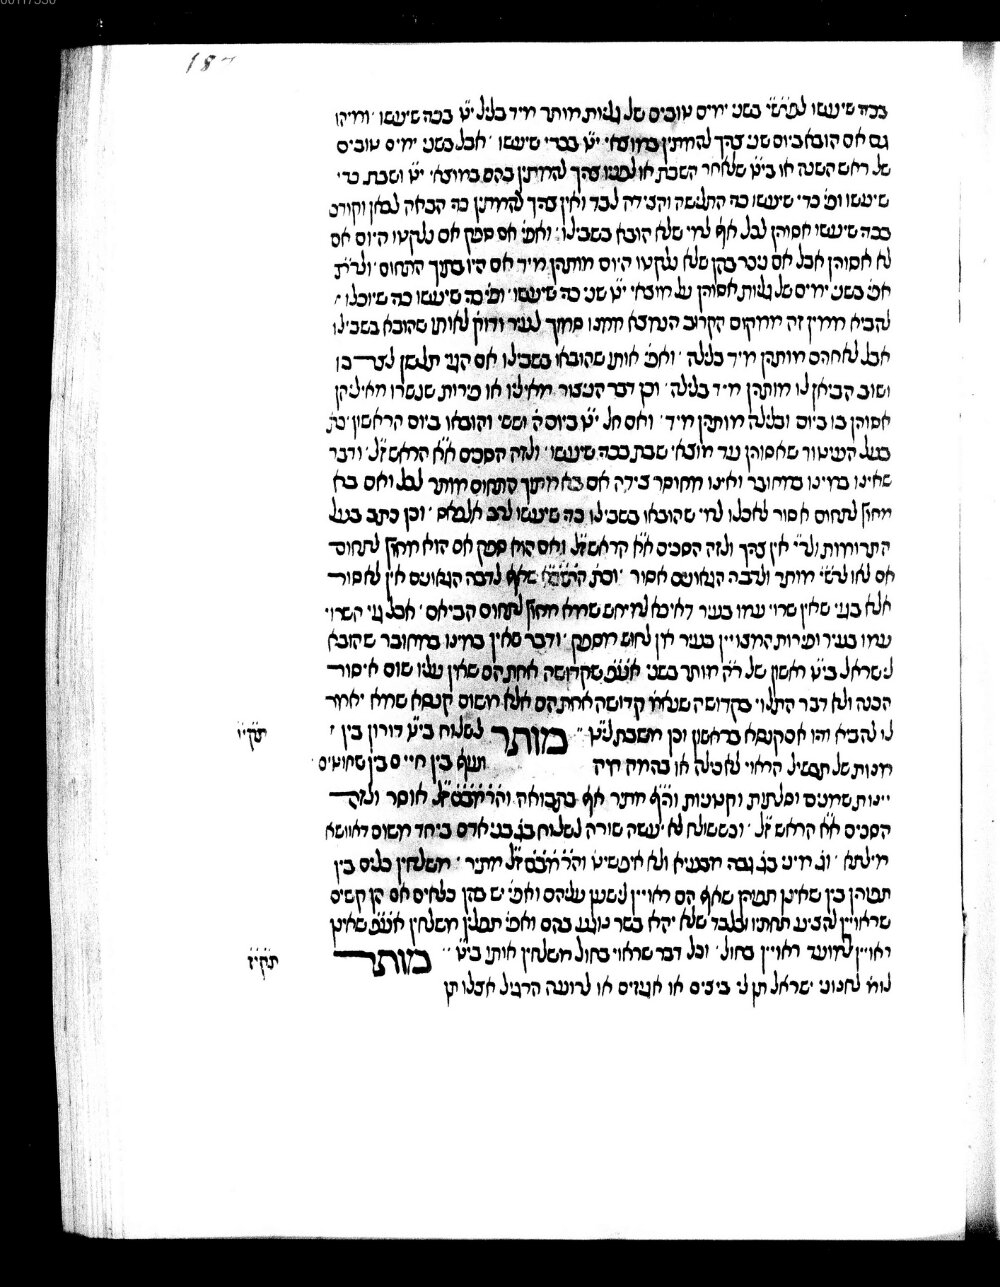 בכדי שיעשו לפרש"י בשני ימים טובים של גליות מותר מיד בליל י"ט בכדי שיעשו ׳ ומיהו
גם אם הובא ביום שני צריך להמתין במוצאי י"ט בכדי שיעשו ׳ אבל בשני ימים טובים
של ראש השנה או בי"ט שלאחר השבת או לפניו צריך להמתין בהם במוצאי י"ט ושבת כדי
שיעשו ופי׳ כדי שיעשו כדי התלישה והצידה לבד ואין צריך להמתין כדי הבאה לכאן וקודם
בכדי שיעשו אסורין לכל אף למי שלא הובא בשבילו ׳ ואפי׳ אם ספק אם נלקטו היום אם
לא אסורין אבל אם ניכר בהן שלא נלקטו היום מותרין מיד אם היו בתוך התחום ׳ ולר"ת
אפי׳ בשני ימים של גליות אסורין עד מוצאי י"ט שני כדי שיעשו ׳ ופי׳ כדי שיעשו כדי שיוכלו
להביא ממין זה ממקום הקרוב הנמצא ממנו סמוך לעיר ודוק׳ לאותו שהובא בשבילו
אבל לאחרים מותרין מיד בלילה ׳ ואפי׳ אותו שהובאו בשבילו אם הגוי תלשן לצרכו
ושוב הביאן לו מותרין מיד בלילה ׳ וכן דבר הניצוד מאיליו או פירות שנשרו מאיליהן
אסורין בו ביום ובלילה מותרין מיד ׳ ואם חל י"ט ביום ה׳ וששי והובאו ביום הראשון כת׳
בעל העיטור שאסורין עד מוצאי שבת בכדי שיעשו ׳ ולזה הסכים א"א הרא"ש ז"ל ׳ ודבר
שאינו במינו במחובר ואינו מחוסר צידה אם בא מתוך התחום מותר לכל ואם בא
מחוץ לתחום אסור לאכלו למי שהובאו בשבילו כדי שיעשו לרב אלפאס ׳ וכן כתב בעל
התרומות ולר"י אין צריך ולזה הסכים א"א הרא"ש ז"ל ואם הוא ספק אם הוא מחוץ לתחום
אם לאו לרש"י מותר ולדברי הגאונים אסור ׳ וכת׳ הרשב"א שאף לדברי הגאונים אין לאסור
אלא בגוי שאין שרוי עמו בעיר דאיכא למיחש שמא מחוץ לתחום הביאם ׳ אבל גוי השרוי
עמו בעיר ופירות המצויין בעיר אין לחוש מספק ׳ ודבר שאין במינו במחובר שהובא
לישראל בי"ט ראשון של ר"ה מותר בשני אע"פ שקדושה אחת הם שאין עליו שום איסור
הכנה ולא דבר התלוי בקדושה שנאמ׳ קדושה אחת הם אלא משום קנסא שמא יאמר
לו להביא והו אסקנסא בראשון וכן משבת לי"ט ׳
מותר לשלוח בי"ט דורון בין
תקי"ו
מנות של תבשיל הראוי לאכילה או בהמה חיה
ועוף בין חיים בין שחוטים
יינות שמנים וסלתות וקטניות והר"ף מתיר אף בתבואה והרמב"ם ז"ל אוסר ולזה
הסכים א"א הרא"ש ז"ל ׳ וכששולח לא יעשה שורה לשלוח בג׳ בני אדם ביחד משום דאוושא
מילתא ׳ וג׳ מיני בג׳ גברי מבעיא ולא איפשיט והרמב"ם ז"ל מתיר ׳ משלחין כלים בין
תפורין בין שאינן תפורין שאף הם ראויין לישען עליהם ואפי׳ יש בהן כלאים אם הן קשים
שראויין להציע תחתיו ובלבד שלא יהא בשר נוגע בהם ואפי׳ תפלין משלחין אע"פ שאינן
ראויין למועד ראויין בחול ׳ וכל דבר שראוי בחול משלחין אותו בי"ט ׳
מותר
תקי"ז
לומ׳ לחנוני ישראל תן לי ביצים או אגוזים או לרועה הרגיל אצלו תן